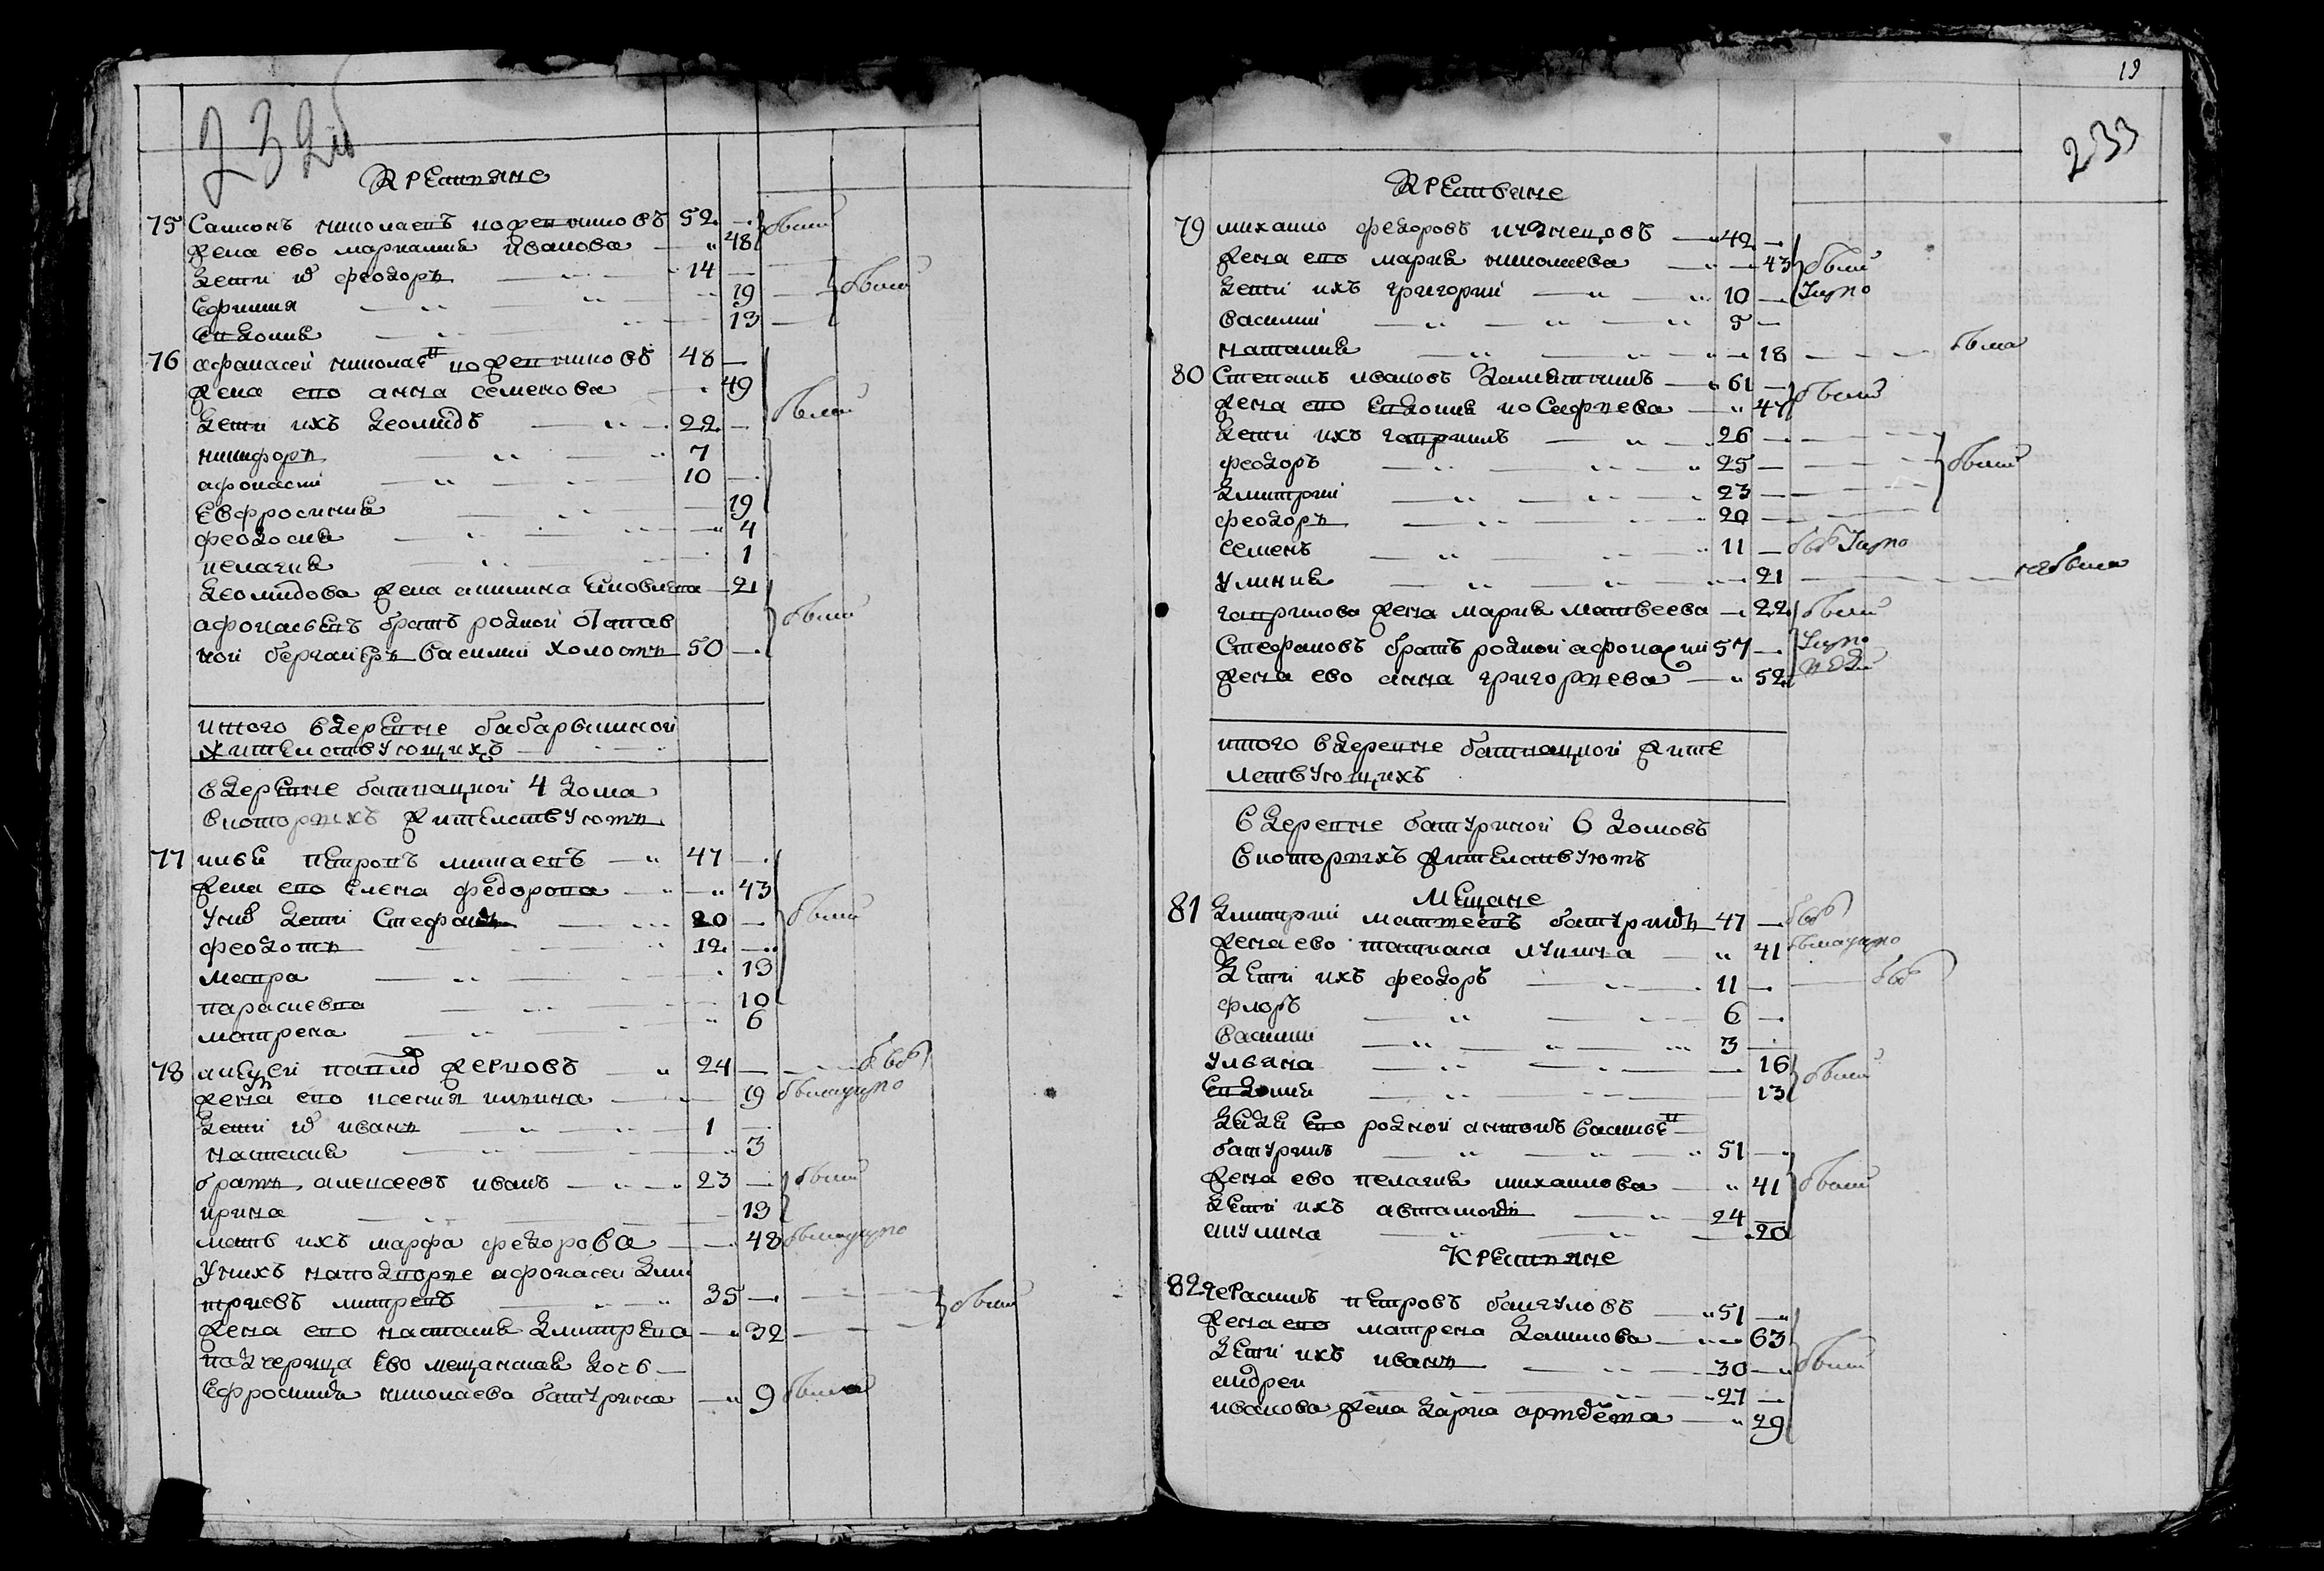 232об
Крестьяне
75 Самсонъ николаевъ кожевниковъ 52 — были
жена ево мариамия иванова — 48
дети их феодоръ — 14 —
Ефимия — 19 — были
Евдокия — 13 —
76 афанасеи николаев кожевниковъ 48 —
жена ево анна семенова — 49
дети ихъ леонидъ — 22 — были
никифоръ 7
афонасии 10 —
Евфросиния — 19
феодосия — 4
пелагия — 1
леонидова жена акилина яковлева — 21
афонасьевъ братъ родной Отстав были
ной Василии холостъ 50 —
итого вдеревне бабарыкиной
жительствующихъ
вдеревне баткацкой 4 дома
вкоторыхъ жительствуютъ
77 петровъ 47 —
жена ево Елена федорова — 43
Унив дети Стефанъ 20 — были
феодотъ 12 —
мавра — 13
парасковва — 10
матрена — 6
78 жерновъ 24 — былъ
жена ево ксения — 19 былатутъ
дети их иванъ 1 —
наталия 3
братъ алексеевъ иванъ 23 — были
ирина — 13
мать ихъ марфа федорова — 48 былатутъ
Унихъ наподворье афонасеи дми
триевъ 35 — были
жена ево настасия дмитрева — 32
падчерица Ево мещанская дочь
Ефросиния николаева батурина — 9 была
19
233
Крестьяне
79 михаило федоровъ 42 —
жена ево мария николаева — 43 были
дети ихъ григории — 10 — тутъ
василии — 5 —
наталия — 18 — была
80 Степанъ ивановъ 61 — были
жена ево Евдокия — 47
дети ихъ гавриилъ — 26 —
феодоръ — 25 — были
дмитрии — 23 —
феодоръ — 20 —
семенъ — 11 — былъ тутъ
улиния — 21 — небыла
гаврилова жена мария матвеева — 22 были
Стефановъ братъ родной афонасии 57 — тутъ
жена ево анна григорьева — 52
итого вдеревне баткацкой жите
льствующихъ
вдеревне батуриной 6 домовъ
вкоторыхъ жительствуютъ
мещане
81 дмитрии матвеевъ батуринъ 47 — былъ
жена ево татиана — 41 былатутъ
дети ихъ феодоръ — 11 — былъ
флоръ — 6 —
василии — 3 —
ульяна — 16 были
Евдокия — 13
дядя Ево родной антонъ васильев
батуринъ — 51 —
жена ево пелагия михаилова — 41 были
дети ихъ автамонъ — 24 —
акулина — 20
Крестьяне
82 герасимъ петровъ 51 —
жена ево матрена данилова — 63
дети ихъ иванъ — 30 — были
андреи — 27 —
иванова жена дария — 29